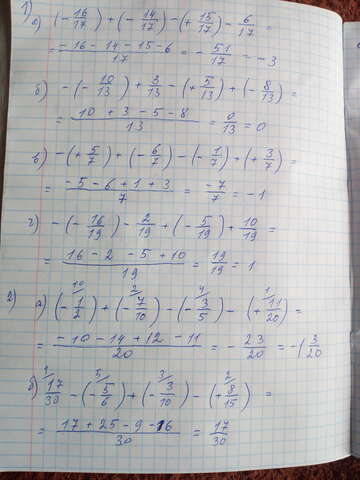 1) а) (-16/17) + (-14/17) - (+15/17) - 6/17 =
= -16-14-15-6/17 = -51/17 = -3
б) -(-10/13) + 3/13 - (+5/13) + (-8/13) =
= 10+3-5-8/13 = 0/13 = 0
в) -(+5/7) + (-6/7) - (-1/7) + (+3/7) =
= -5-6+1+3/7 = -7/7 = -1
г) -(-16/19) - 2/19 + (-5/19) + 10/19 =
= 16-2-5+10/19 = 19/19 = 1
2) а) (-1/2) + (-7/10) - (-3/5) - (+11/20) =
= -10-14+12-11/20 = -23/20 = -1 3/20
б) 17/30 - (-5/6) + (-3/10) - (+8/15) =
= 17+25-9-16/30 = 17/30